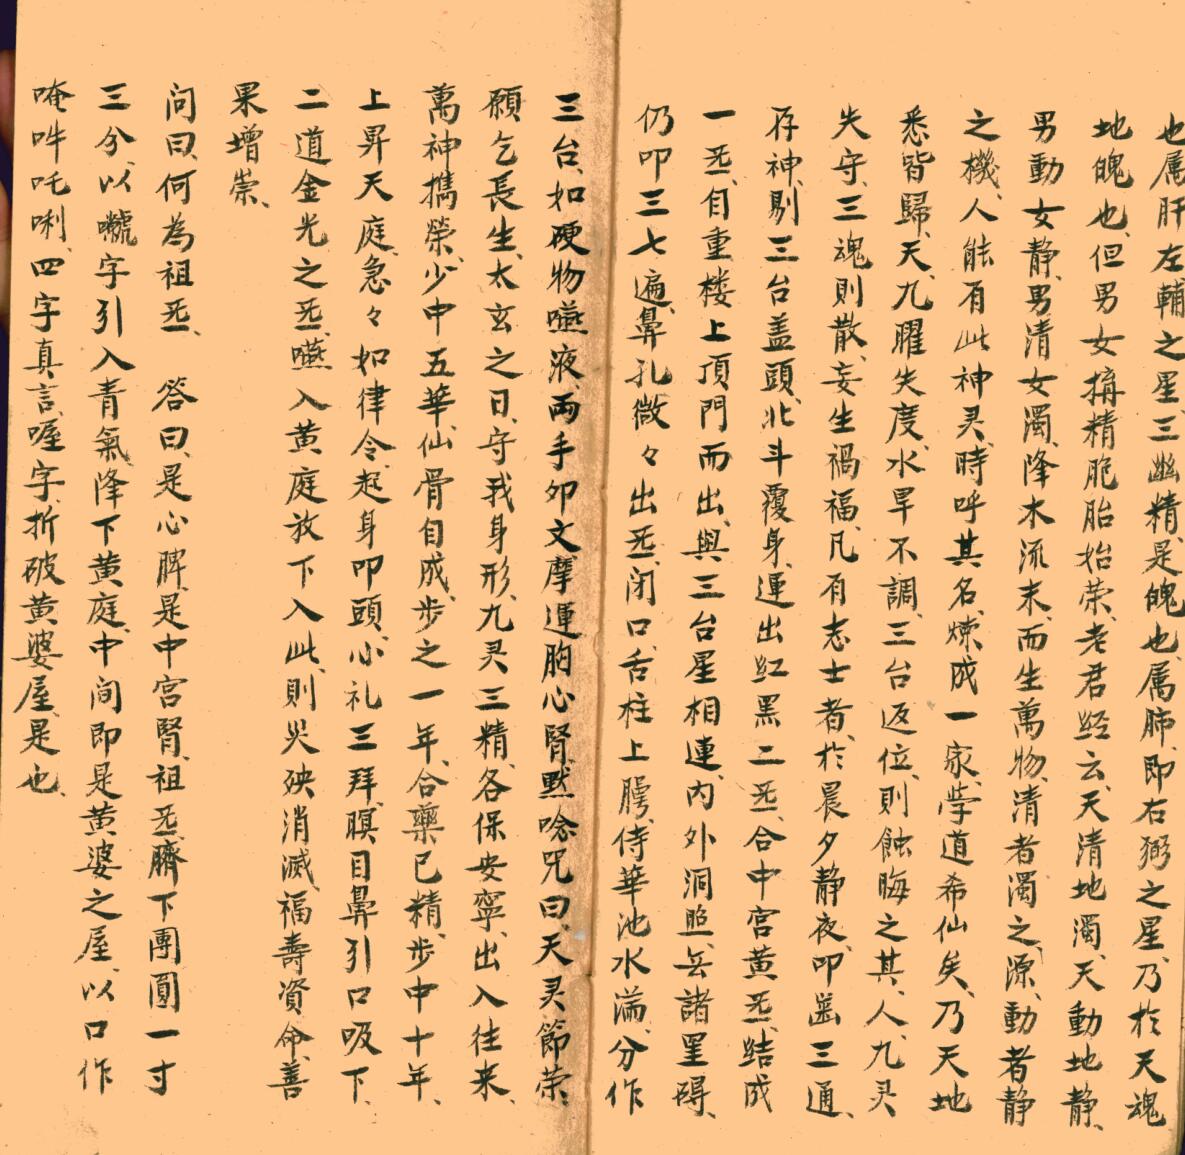 也、属肝、左輔之星、三幽精、是魄也、属肺、即右弼之星、乃於天魂
地魄也、但男女搆精、胞胎始荣、老君経云、天清地濁、天動地静、
男動女静、男清女濁、降本流末、而生萬物、清者濁之源、動者静
之機、人能有此神灵、時呼其名、煉成一家、学道希仙矣、乃天地
悉皆歸、天九曜失度、水旱不調、三台返位、則蝕晦之其、人九灵
失守、三魂則散、妄生禍福、凡有志士者、於晨夕静夜、叩齒三通、
存神、剔三台盖頭、北斗覆身、運出紅黑二炁、合中宫黄炁、結成
一炁、自重楼上頂門而出、與三台星相連、内外洞照、无諸星碍、
仍叩三七遍、鼻孔微々出炁、閉口、舌柱上腭、侍華池水満、分作
三台、如硬物嚥液、両手夘文摩運胸心腎、默唸咒曰、天灵節荣、
願乞長生、太玄之日、守我身形、九灵三精、各保安寧、出入往来、
萬神携榮、少中五華、仙骨自成、步之一年、合藥已精、步中十年、
上昇天庭、急々如律令、起身叩頭、心礼三拜、瞑目鼻引口吸下、
二道金光之炁、嚥入黄庭、放下入此、則災殃消滅、福壽資命、善
果增崇、
问曰、何為祖炁、 答曰、是心脾、是中宫腎、祖炁臍下團圓一寸
三分、以嚱字引入青氣、降下黄庭、中间即是黄婆之屋、以口作
唵吽吒唎、四字真言、喔字、折破黄婆屋、是也、